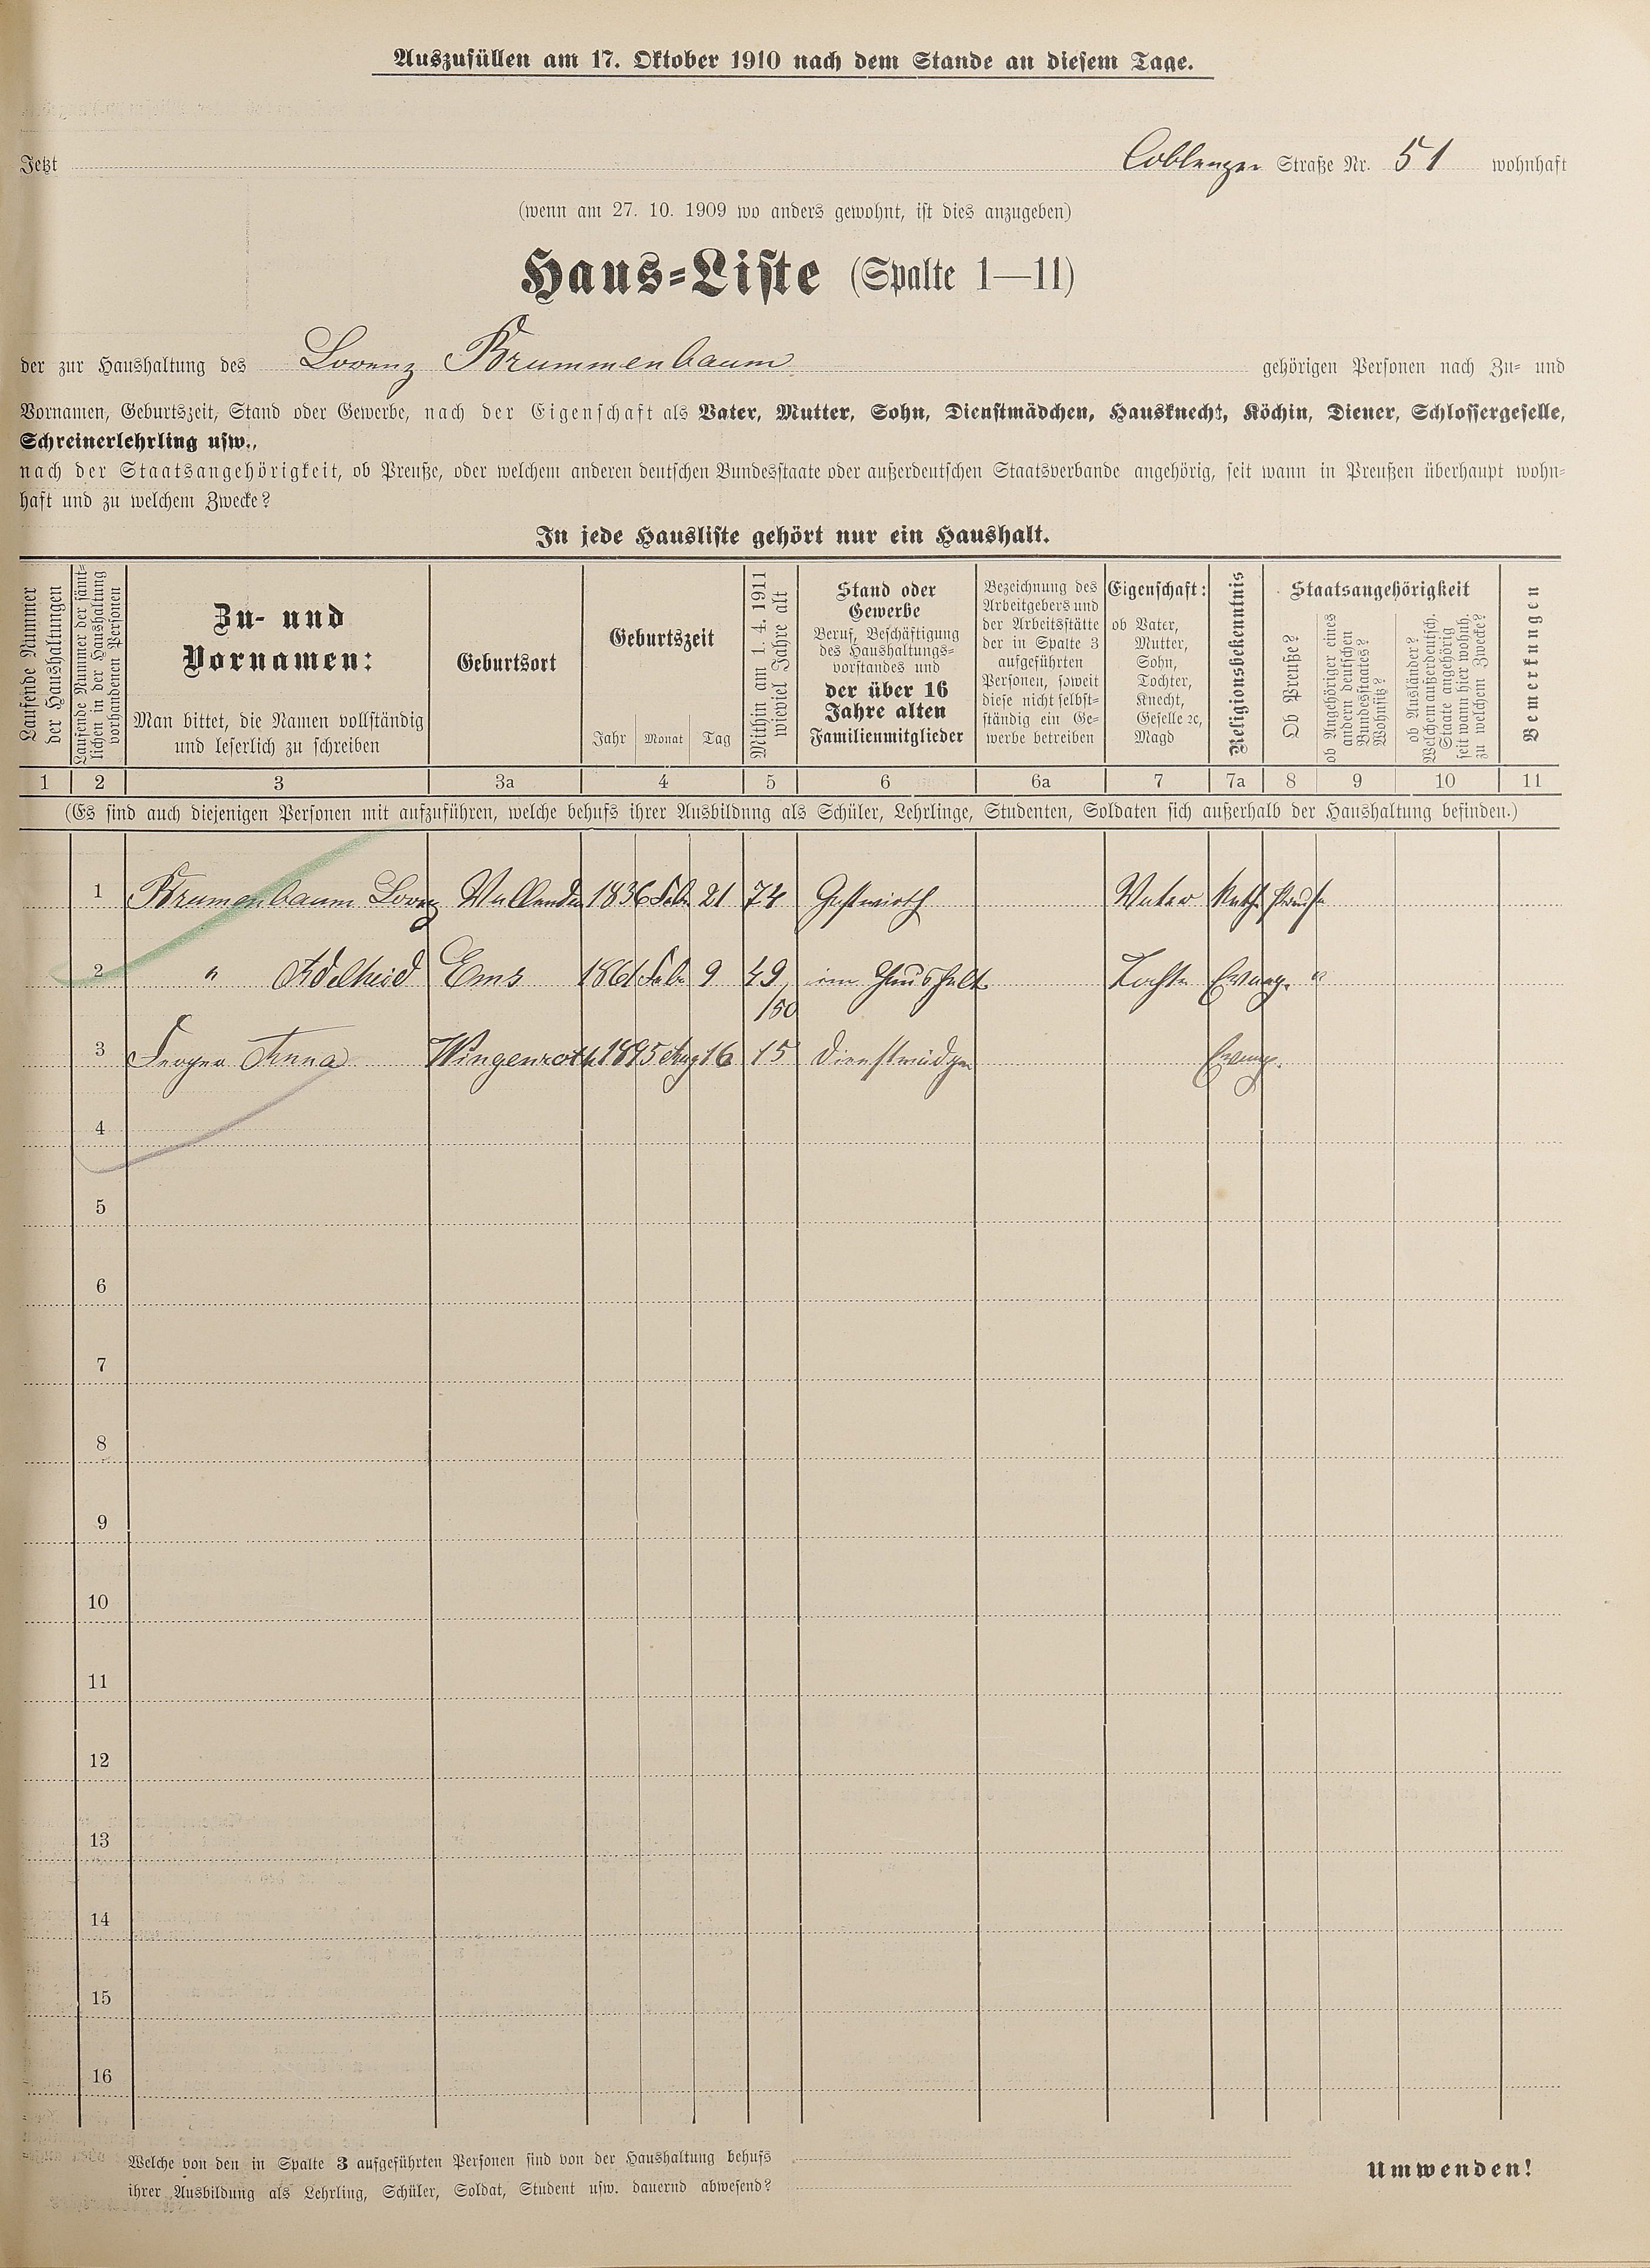 Auszufüllen am 17. Oktober 1910 nach dem Stande an diesem Tage.
Jetzt Coblenzer Straße Nr. 51 wohnhaft
(wenn am 27. 10. 1909 wo anders gewohnt, ist dies anzugeben)
Haus-Liste (Spalte 1—11)
der zur Haushaltung des Lorenz Krummenbaum gehörigen Personen nach Zu- und
Vornamen, Geburtszeit, Stand oder Gewerbe, nach der Eigenschaft als Vater, Mutter, Sohn, Dienstmädchen, Hausknecht, Köchin, Diener, Schlossergeselle,
Schreinerlehrling usw.,
nach der Staatsangehörigkeit, ob Preuße, oder welchem anderen deutschen Bundesstaate oder außerdeutschen Staatsverbande angehörig, seit wann in Preußen überhaupt wohn-
haft und zu welchem Zwecke?
In jede Hausliste gehört nur ein Haushalt.
Laufende Nummer
der Haushaltungen
Laufende Nummer der sämt-
lichen in der Haushaltung
vorhandenen Personen
Zu- und
Vornamen:
Man bittet, die Namen vollständig
und leserlich zu schreiben
Geburtsort
Geburtszeit
Jahr Monat Tag
Mithin am 1. 4. 1911
wieviel Jahre alt
Stand oder
Gewerbe
Beruf, Beschäftigung
des Haushaltungs-
vorstandes und
der über 16
Jahre alten
Familienmitglieder
Bezeichnung des
Arbeitgebers und
der Arbeitsstätte
der in Spalte 3
aufgeführten
Personen, soweit
diese nicht selbst-
ständig ein Ge-
werbe betreiben
Eigenschaft:
ob Vater,
Mutter,
Sohn,
Tochter,
Knecht,
Geselle ꝛc,
Magd
Religionsbekenntnis
Staatsangehörigkeit
Ob Preuße?
ob Angehöriger eines
andern deutschen
Bundesstaates?
Wohnsitz?
ob Ausländer?
Welchem außerdeutsch.
Staate angehörig
seit wann hier wohnh.
zu welchem Zwecke?
Bemerkungen
1 2 3 3a 4 5 6 6a 7 7a 8 9 10 11
(Es sind auch diejenigen Personen mit aufzuführen, welche behufs ihrer Ausbildung als Schüler, Lehrlinge, Studenten, Soldaten sich außerhalb der Haushaltung befinden.)
1 Krumenbaum Lorenz Vallendar 1836 Febr 21 74 Gastwirth Vater Kath. Preuße
2 " Adelheid Ems 1861 Febr 9 49 im Haushalt Tochter Evang. "
/50
3 Anna Wingenroth 1895 Aug 16 15 Dienstmädchen Evang.
4
5
6
7
8
9
10
11
12
13
14
15
16
Welche von den in Spalte 3 aufgeführten Personen sind von der Haushaltung behufs
ihrer Ausbildung als Lehrling, Schüler, Soldat, Student usw. dauernd abwesend?
Umwenden!